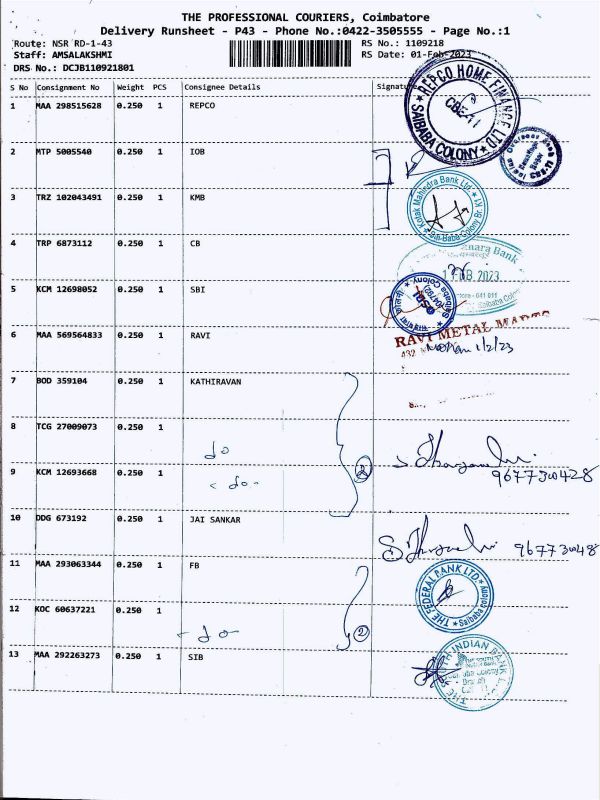 THE PROFESSIONAL COURIERS, Coimbatore
Delivery Runsheet - P43 - Phone No.:0422-3505555 - Page No.:1
Route: NSR RD-1-43 RS No.: 1109218
Staff: AMSALAKSHMI RS Date: 01-Feb-2023
DRS No.: DCJB110921801
S No Consignment No Weight PCS Consignee Details Signature
1 MAA 298515628 0.250 1 REPCO
REPCO HOME FINANCE LTD
CBE-11
SAIBABA COLONY
2 MTP 5005540 0.250 1 IOB
Indian Overseas Bank
3 TRZ 102043491 0.250 1 KMB
Kotak Mahindra Bank Ltd.
Sai-Baba Colony Br.
4 TRP 6873112 0.250 1 CB
Canara Bank
1 FEB 2023
641 011
Saibaba Colony
5 KCM 12698052 0.250 1 SBI
SBI
Saibaba Colony
6 MAA 569564833 0.250 1 RAVI
RAVI METAL MARTS
432
1/2/23
7 BOD 359104 0.250 1 KATHIRAVAN
8 TCG 27009073 0.250 1
do
9 KCM 12693668 0.250 1
- do -
3
9677300428
10 DDG 673192 0.250 1 JAI SANKAR
967730048
11 MAA 293063344 0.250 1 FB
THE FEDERAL BANK LTD
Saibaba Colony
12 KOC 60637221 0.250 1
- do -
2
13 MAA 292263273 0.250 1 SIB
THE SOUTH INDIAN BANK
Branch